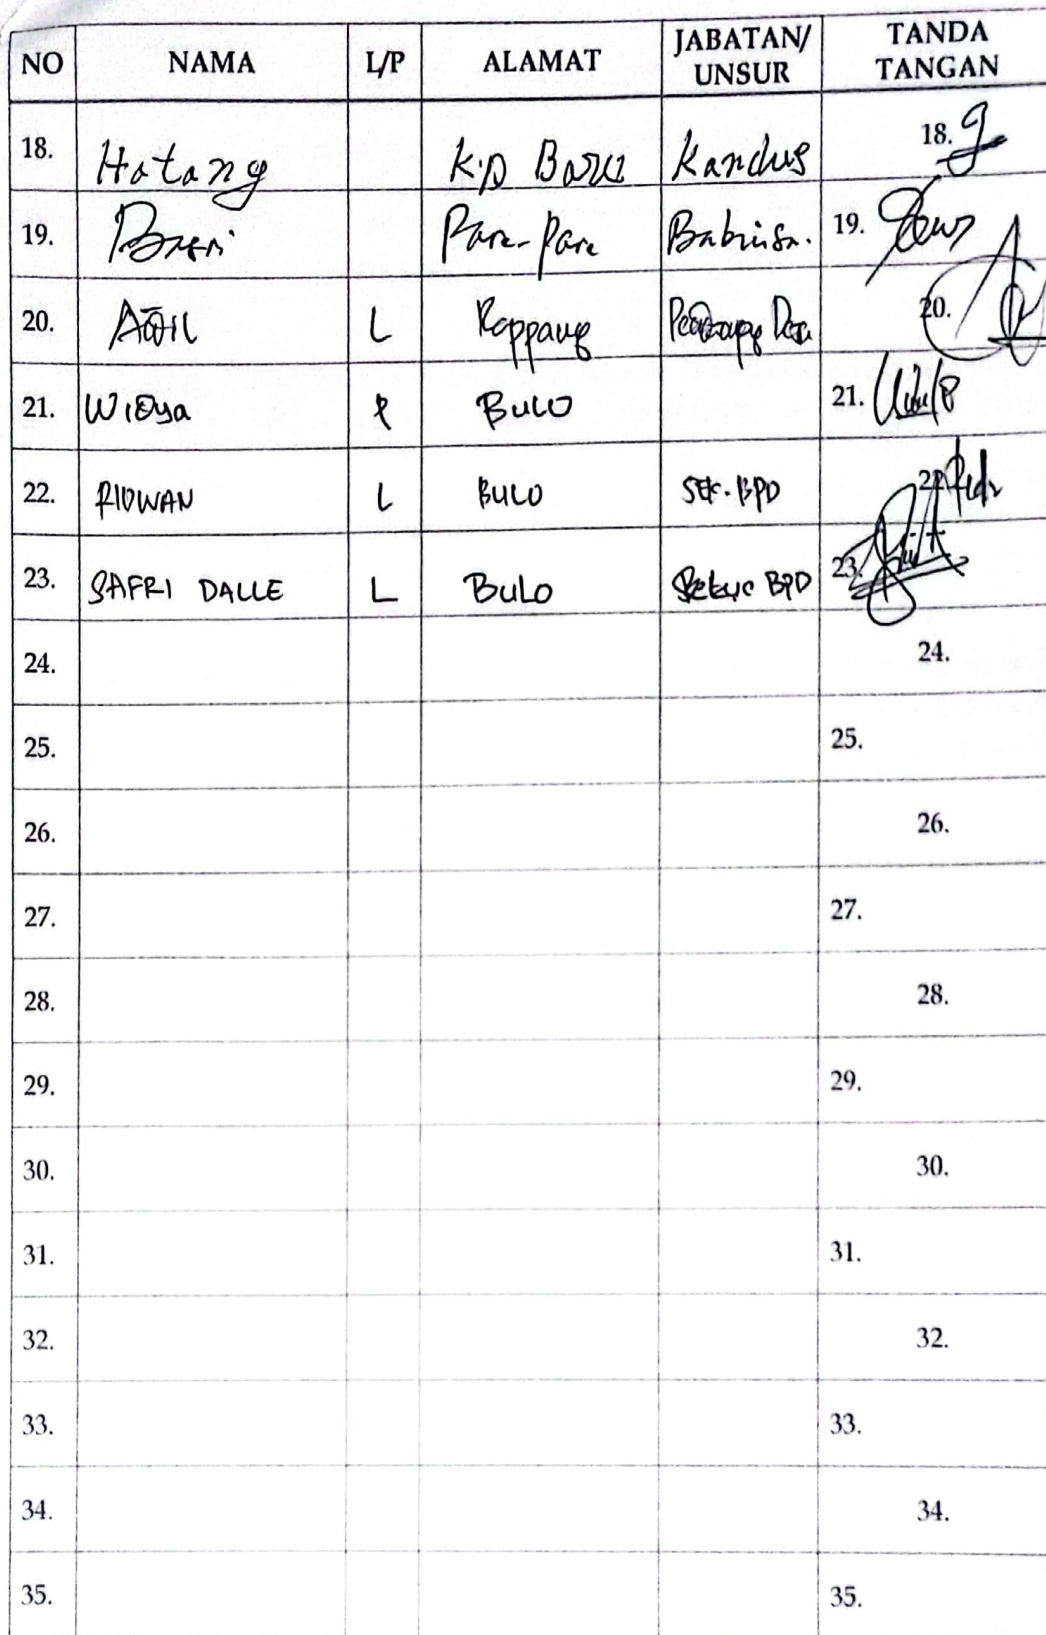 NO NAMA L/P ALAMAT JABATAN/ UNSUR TANDA TANGAN
18. Hatang K.p Baru Kandus 18.
19. Basri Pare-Pare Babinsa. 19.
20. L Kappang Desa 20.
21. Widya P BULO 21.
22. RIDWAN L BULO SEK. BPD 22.
23. SAFRI DALLE L BULO BPD 23.
24. 24.
25. 25.
26. 26.
27. 27.
28. 28.
29. 29.
30. 30.
31. 31.
32. 32.
33. 33.
34. 34.
35. 35.